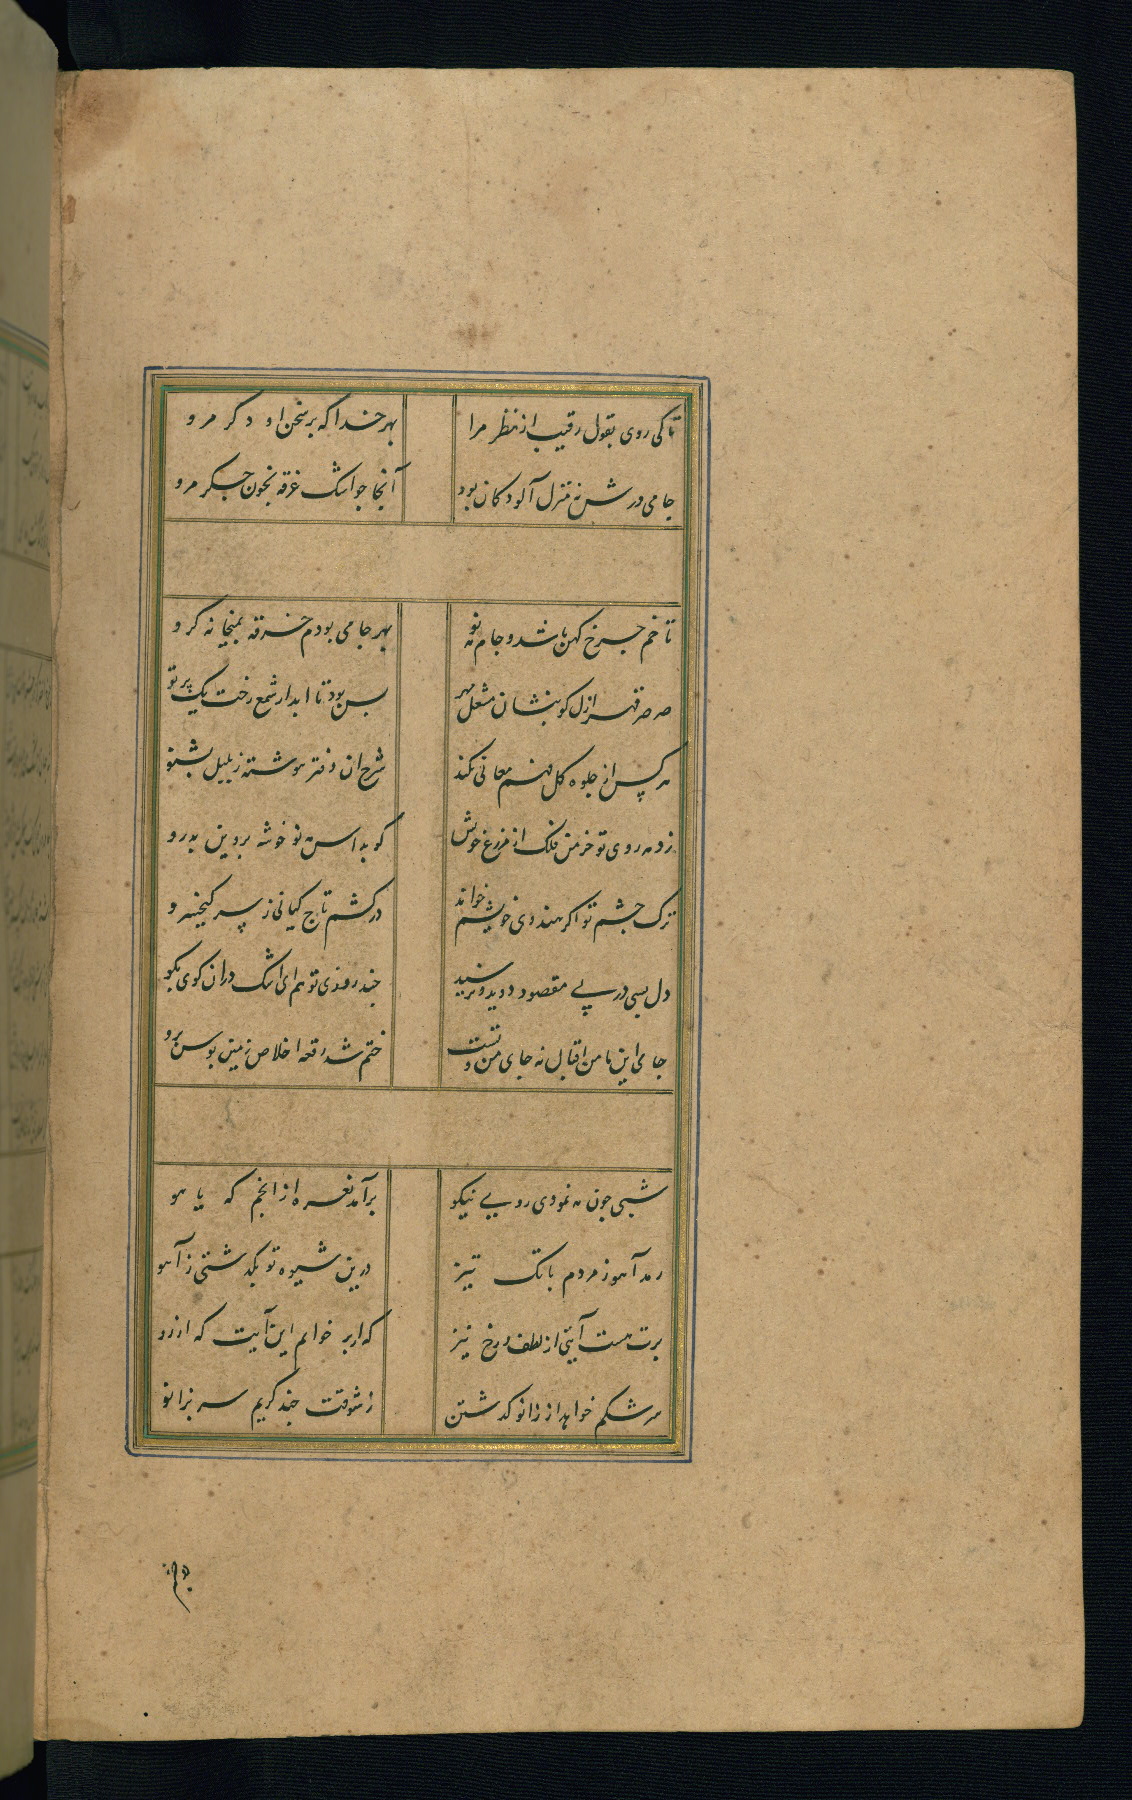 تا کی روی بقول رقیب از نظر مرا بهر خدا که بر سخن او دکر مرو
جامی درش نه منزل آلودکان بود آنجا جو اشک غرقه بخون جکر مرو
تا خم جرخ کهن باشد و جام مه نو بهر جامی بودم خرقه بمیخانه کرو
صرصر قهر ازل کو بنشان مشعل مهر بس بود تا ابد از شمع رخت یک پرتو
هر کس از جلوه کل فهم معانی نکند شرح ان دفتر ننوشته ز بلبل بشنو
زد مه روی تو خرمن فلک از مزرع خویش کو بداس مه نو خوشه پروین بدرو
ترک جشم تو اکر هندوی خویشم خواند درکشم تاج کیانی ز سر کیخسرو
دل بسی در پی مقصود دوید و نرسید جند روزی تو هم ای اشک دران کوی بکو
جامی این نامن اقبال نه جای من و تست ختم شد رقعه اخلاص زمین بوس برو
شبی جون مه نمودی روی نیکو برآمد نعره از انجم که یا هو
رمد آهو ز مردم بانک تیز درین شیوه تو بکذشتی ز آهو
برت هست آیتی از لطف و رخ نیز که از بر خوانم این آیت که از رو
سرشکم خواهد از زانو کذشتن ز شوقت جند کریم سر بزانو